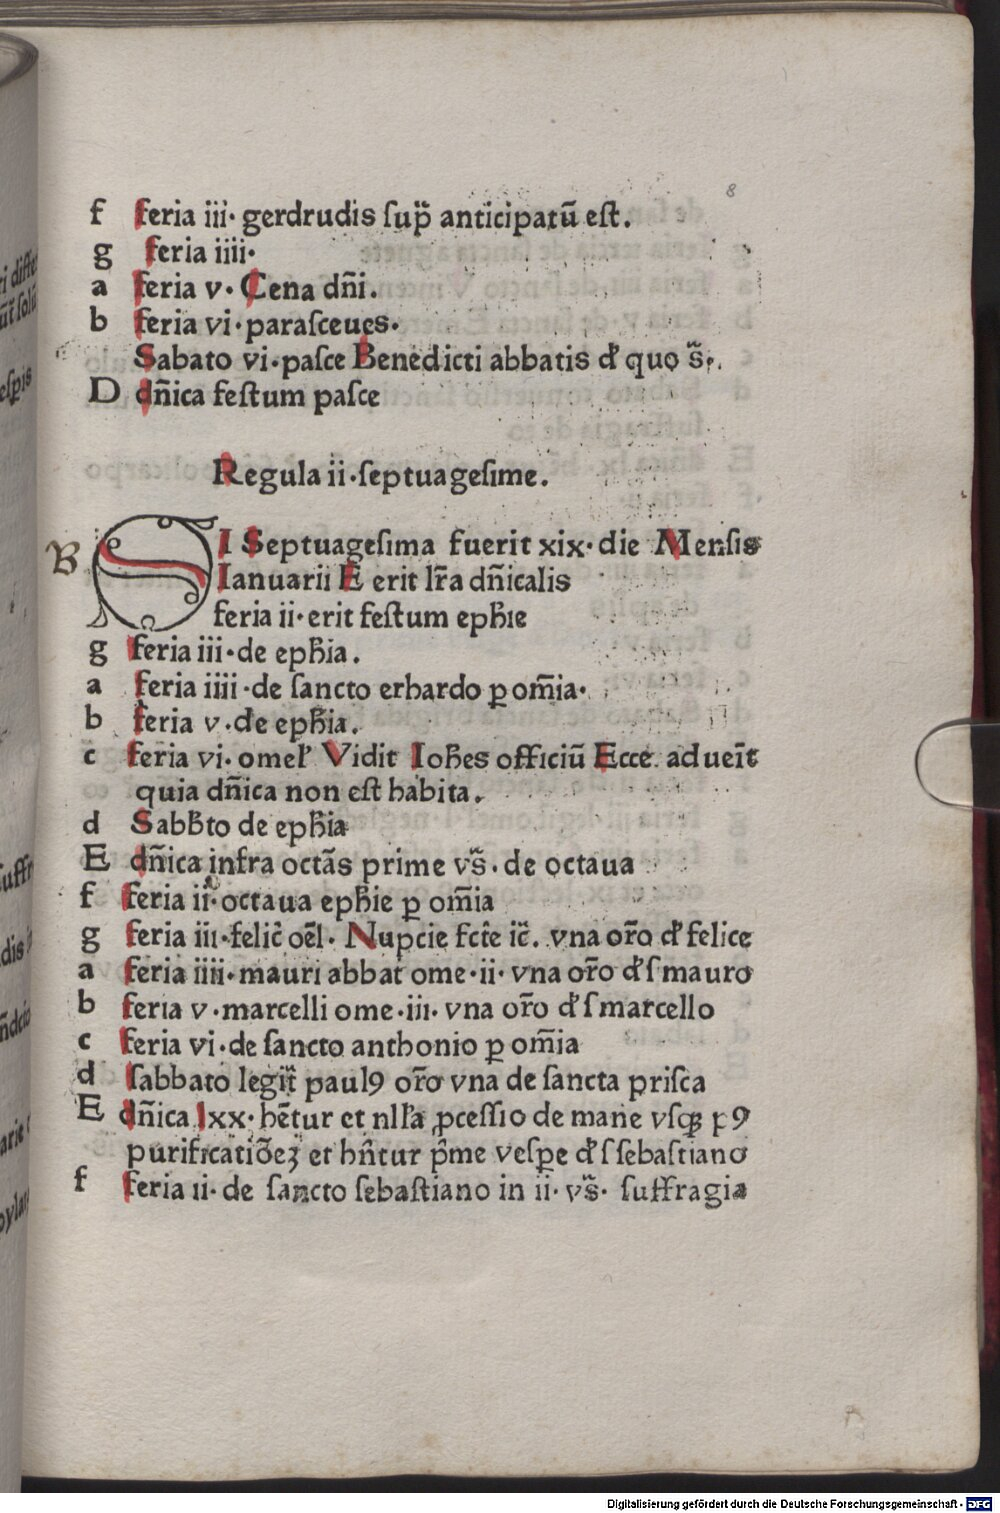 8
f feria iii· gerdrudis ſup̃ anticipatū eſt.
g feria iiii·
a feria v· Cena dñi.
b feria vi·paraſceues·
Sabato vi·paſce Benedicti abbatis đ quo s̃·.
D dñica feſtum paſce
Regula ii·ſeptuageſime.
B SI Septuageſima fuerit xix·die Menſis
Ianuarii E erit lr̃a dñicalis
feria ii·erit feſtum epħie
g feria iii·de epħia.
a feria iiii·de ſancto erhardo ꝑ om̃ia·
b feria v·de epħia.
c feria vi· omeł Vidit Ioħes officiū Ecce aduēit
quia dñica non eſt habita.
d Sabƀto de epħia
E dñica infra octãs prime vs̃· de octaua
f feria ii·octaua epħie ꝑ om̃ia
g feria iii·felic̃ oēl· Nupcie fct̃e ic̃. vna or̃o đ felice
a feria iiii·mauri abbat ome·ii· vna or̃o đ ſ mauro
b feria v·marcelli ome·iii· vna or̃o đ ſ marcello
c feria vi·de ſancto anthonio ꝑ om̃ia
d ſabbato legit̃ paulꝯ or̃o vna de ſancta priſca
E dñica lxx· hẽtur et nlła ꝓceſſio de mane vſqꝫ pꝯ
purificatiõeꝫ et hñtur p̃me veſꝑe đ ſ ſebaſtiano
f feria ii·de ſancto ſebaſtiano in ii· vs̃· ſuffragia
Digitalisierung gefördert durch die Deutsche Forschungsgemeinschaft - DFG